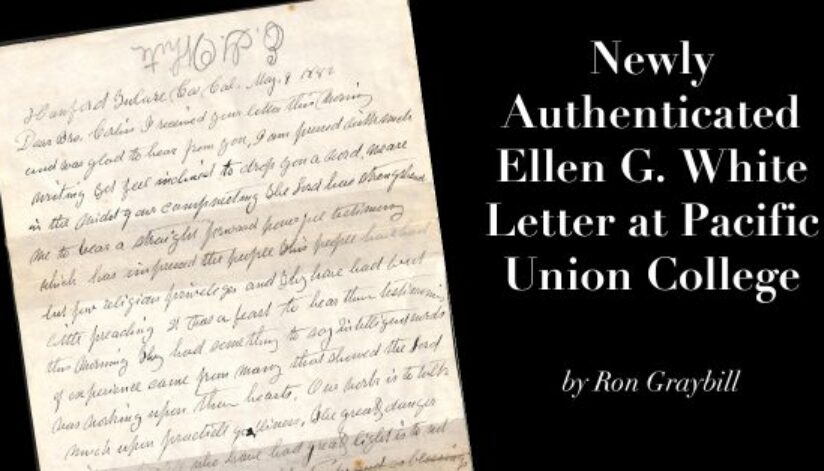 E. G. White
Hanford Tulare Co, Cal. May, 8 1882
Dear Bro. I received your letter this morning
and was glad to hear from you, I am pressed with much
writing yet feel inclined to drop you a word, we are
in the midst of our campmeeting The Lord has strengthened
me to bear a straight forward powerful testimony
which has impressed the people This people have had
but few religious privileges and they have had but
little preaching It was a feast to hear them testimony
this morning They had something to say intelligent words
of experience came from many that showed the Lord
was working upon their hearts. Our work is to talk
much upon practical godliness. The great danger
who have had great light is to
blessing
Newly
Authenticated
Ellen G. White
Letter at Pacific
Union College
by Ron Graybill